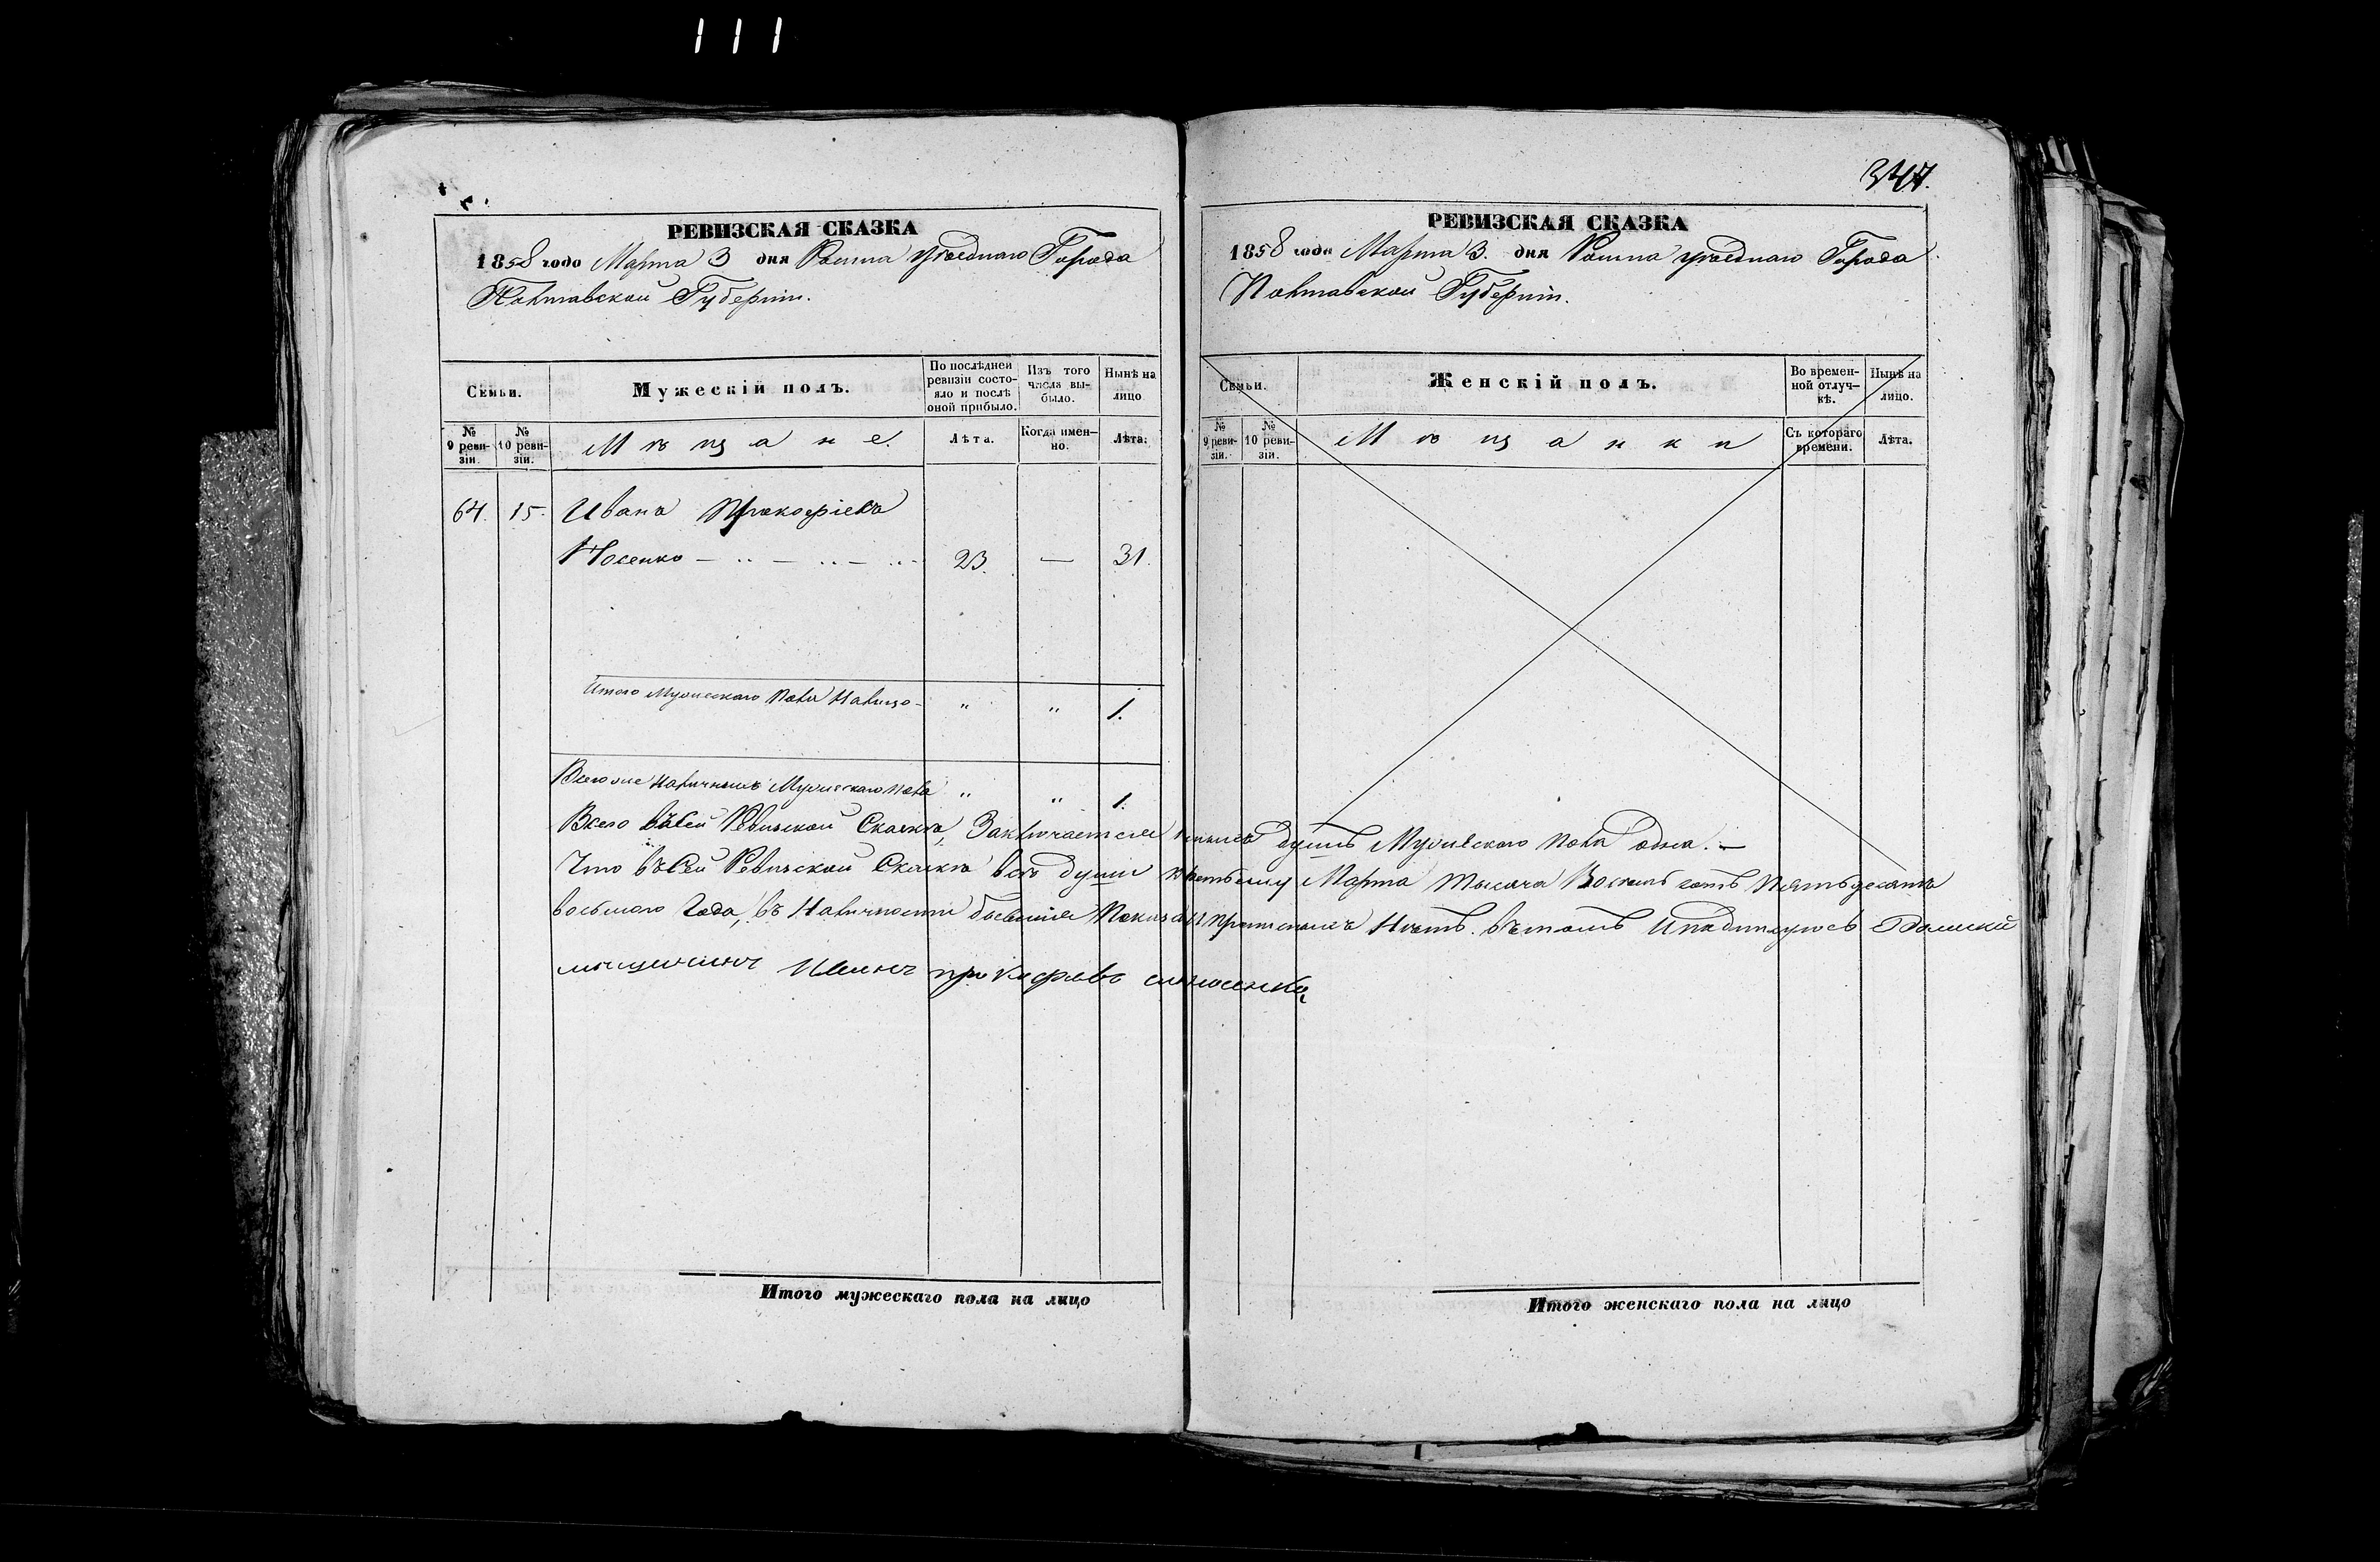 111
347.
РЕВИЗСКАЯ СКАЗКА
1858 года Марта 3 дня Ромна уѣзднаго Города
Полтавской Губерніи.
Семьи.
Мужескій полъ.
По послѣдней ревизіи состояло и послѣ оной прибыло.
Изъ того числа выбыло.
Нынѣ на лицо
№ 9 ревизіи.
№ 10 ревизіи.
Мѣщане.
Лѣта.
Когда именно.
Лѣта.
64. 15. Иванъ Прокофіевъ
Носенко — 23. — 31.
Итого Мужескаго Пола Налицо - " " 1.
Всего же Наличныхъ Мужескаго Пола " " 1.
РЕВИЗСКАЯ СКАЗКА
1858 года Марта 3. дня Ромна уѣзднаго Города
Полтавской Губерніи.
Семьи.
Женскій полъ.
Во временной отлучкѣ.
Нынѣ на лицо.
№ 9 ревизіи.
№ 10 ревизіи.
Мѣщанки
Съ котораго времени.
Лѣта.
Всего въ Сей Ревизской Сказкѣ, Заключается душъ Мужескаго Пола одна. —
Что въ Сей Ревизской Сказкѣ всѣ души Марта Тысяча Восемь сотъ Пятьдесятъ
восьмого Года, въ Наличности бывшіе Показаны Нѣтъ. въ томъ
мещанинъ Иванъ прокофьевъ
Итого мужескаго пола на лицо
Итого женскаго пола на лицо